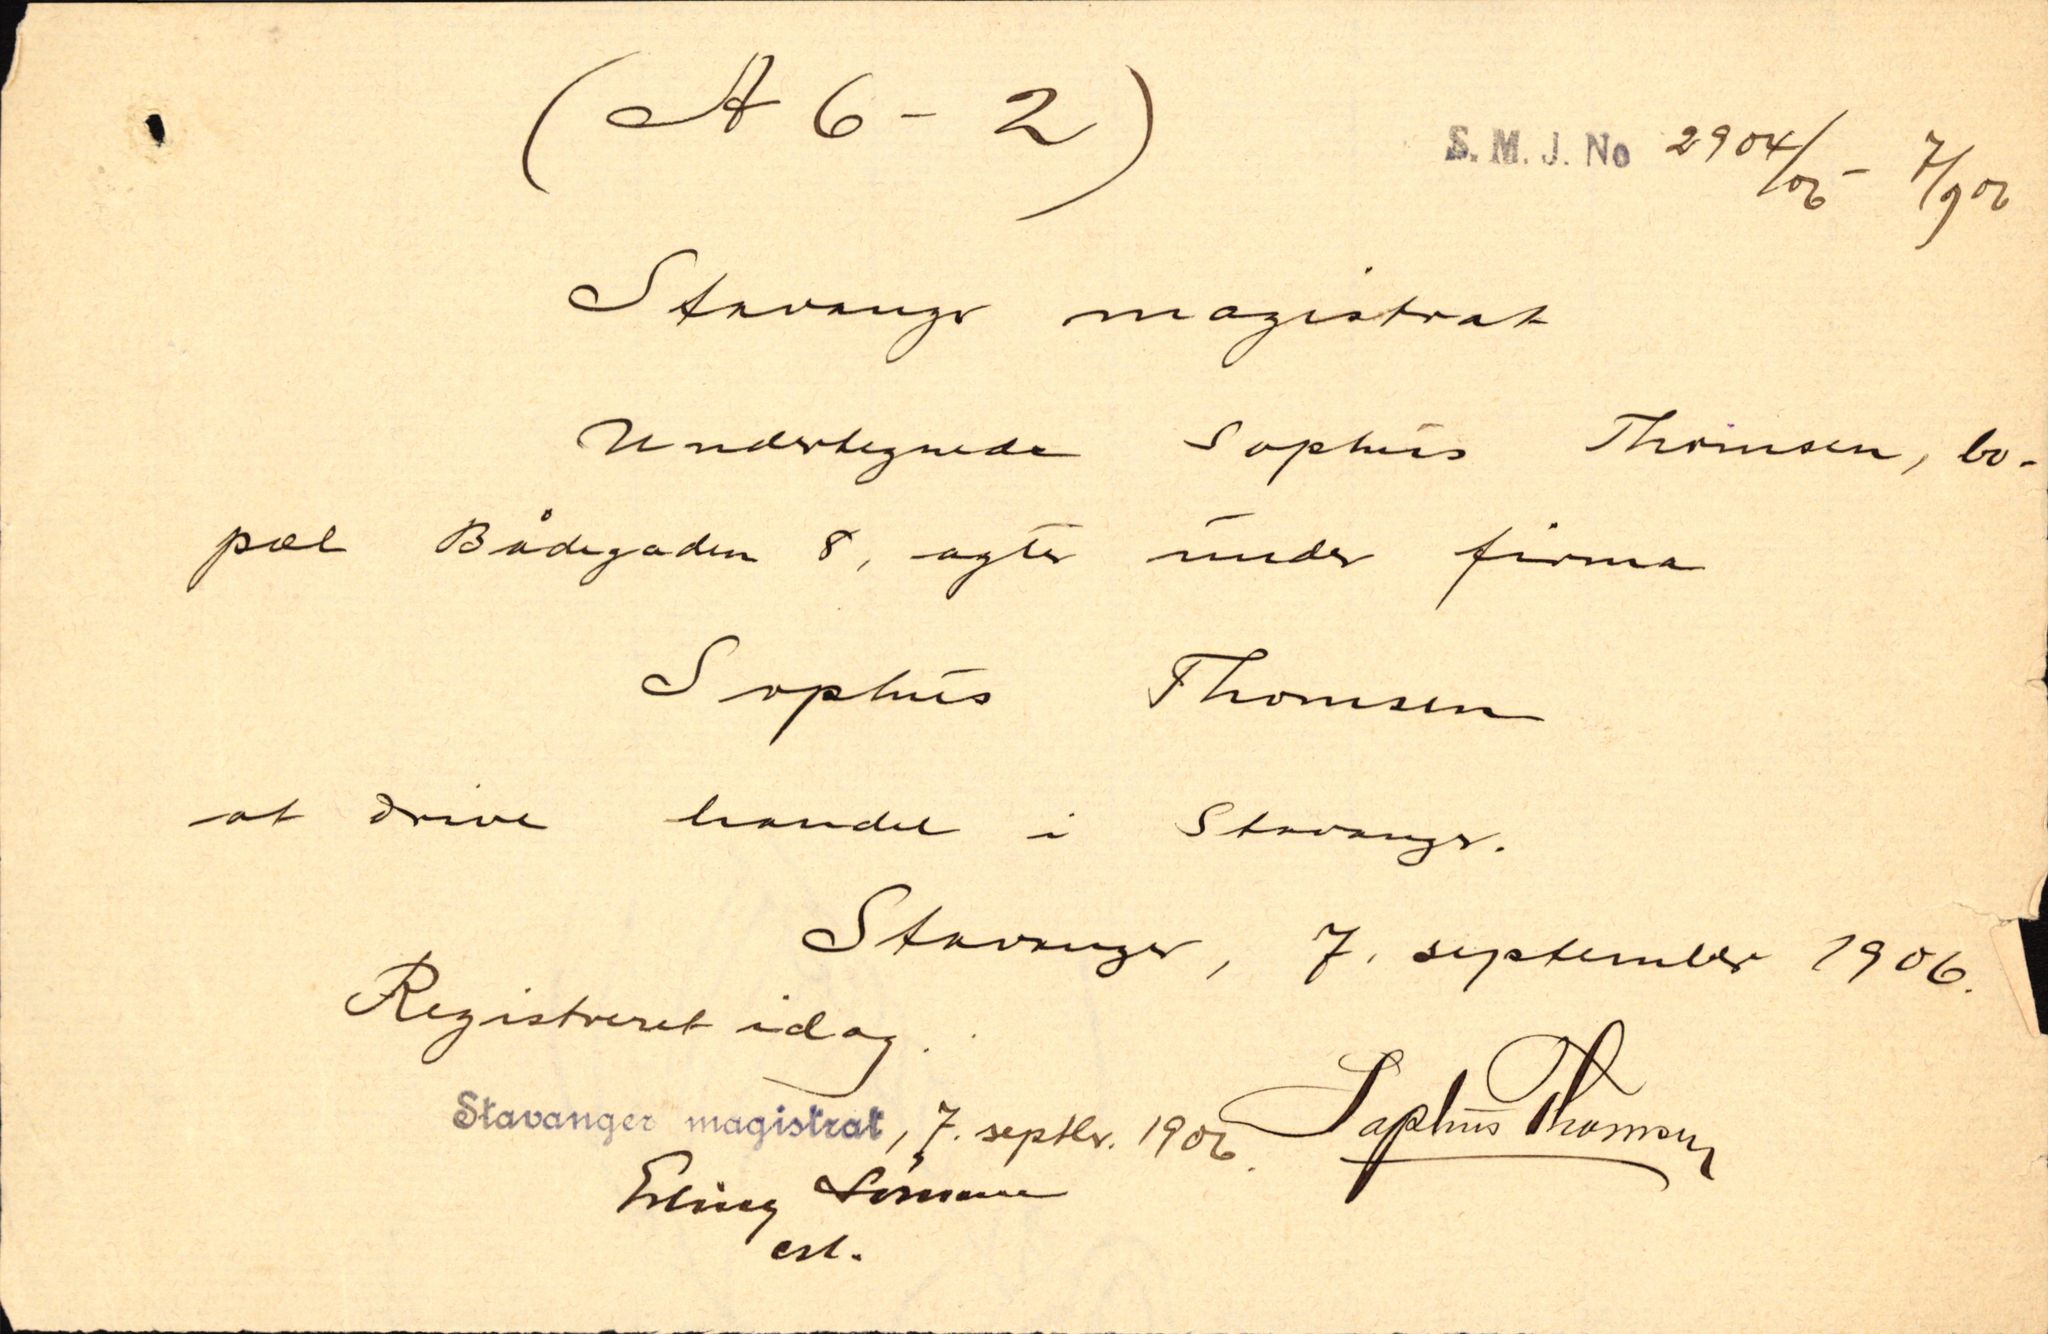 (A 6 - 2)
S. M. J. No 2904/06 - 7/9 06
Stavanger magistrat
Undertegnede Sophus Thomsen, bo-
pæl Bådegaden 8, agter under firma
Sophus Thomsen
at drive handel i Stavanger.
Stavanger, 7. september 1906.
Registreret idag.
Stavanger magistrat, 7. septbr. 1906.
Sophus Thomsen
Erling